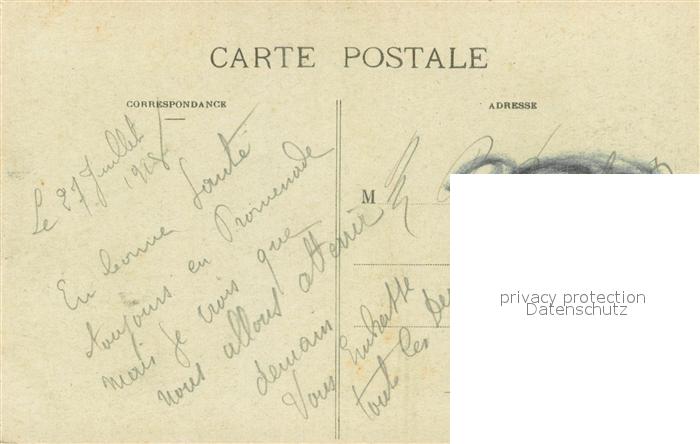 CARTE POSTALE
CORRESPONDANCE
ADRESSE
Le 27 Juillet
1918
En bonne Santé
toujours en Promenade
mais je crois que
nous allons atterrir
demain
Vous Embrasse
toute les
M
privacy protection
Datenschutz